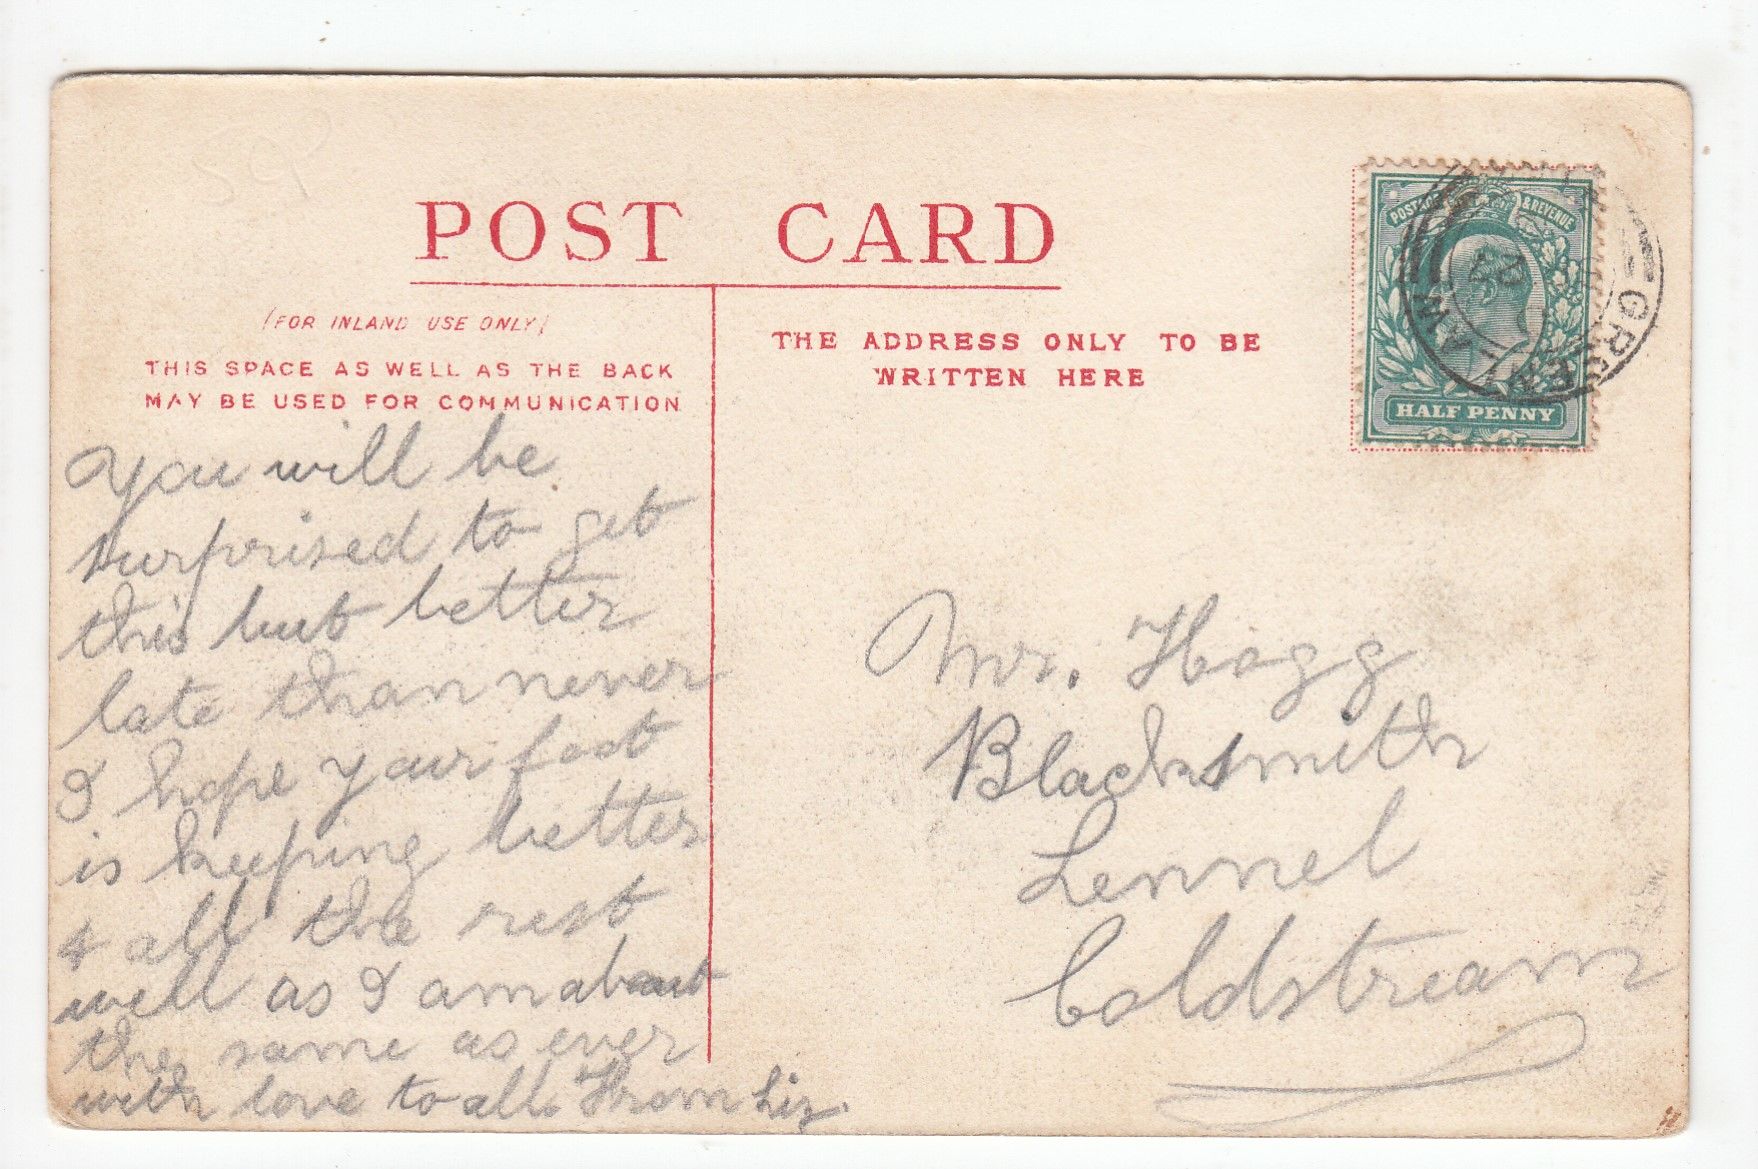 POST CARD
(FOR INLAND USE ONLY)
THIS SPACE AS WELL AS THE BACK
MAY BE USED FOR COMMUNICATION
THE ADDRESS ONLY TO BE
WRITTEN HERE
POSTAGE & REVENUE
HALF PENNY
You will be
surprised to get
this but better
late than never
I hope your foot
is keeping better
& all the rest
well as I am about
the same as ever
with love to all. From Liz.
Mr. Hogg
Blacksmith
Lennel
Coldstream